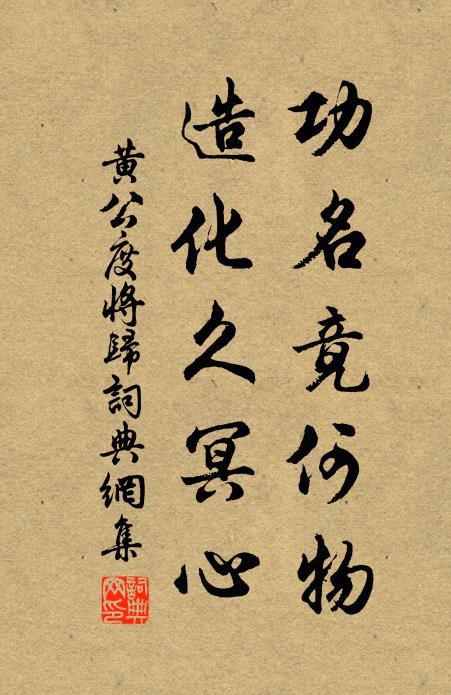 功名竟何物
造化久冥心
黄公度将歸詞典網集
詞典网印